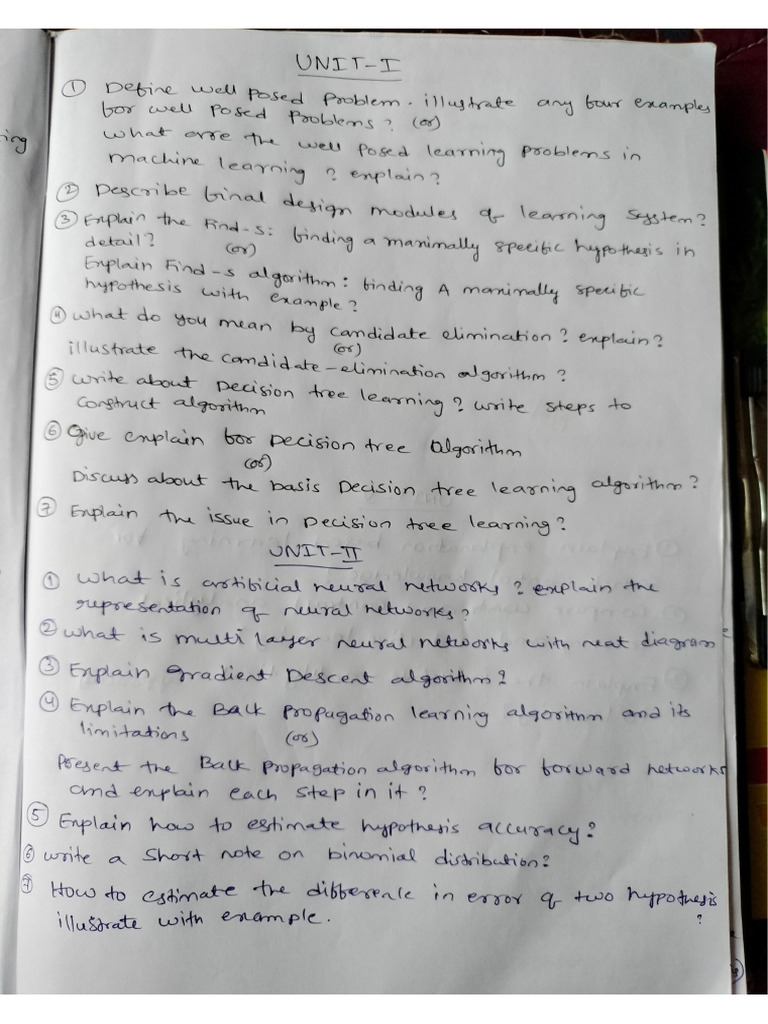 ing
UNIT-I
① Define well posed problem. illustrate any four examples
for well posed problems? (or)
what arre the well posed learning problems in
machine learning? explain?
② Describe final design modules of learning system?
③ Explain the Find-s: finding a maximally specific hypothesis in
detail? (or)
Explain Find-s algorithm: finding A maximally specific
hypothesis with example?
④ what do you mean by candidate elimination? explain?
(or)
illustrate the candidate-elimination algorithm?
⑤ write about Decision tree learning? write steps to
construct algorithm
⑥ Give explain for Decision tree Algorithm
(or)
Discuss about the basis Decision tree learning algorithm?
⑦ Explain the issue in Decision tree learning?
UNIT-II
① what is artificial neural networks? explain the
representation of neural networks?
② what is multi layer neural networks with neat diagram
③ Explain gradient Descent algorithm?
④ Explain the Back propagation learning algorithm and its
limitations (or)
Present the Back propagation algorithm for forward networks
and explain each step in it?
⑤ Explain how to estimate hypothesis accuracy?
⑥ write a short note on binomial distribution?
⑦ How to estimate the difference in error of two hypothesis
illustrate with example. ?